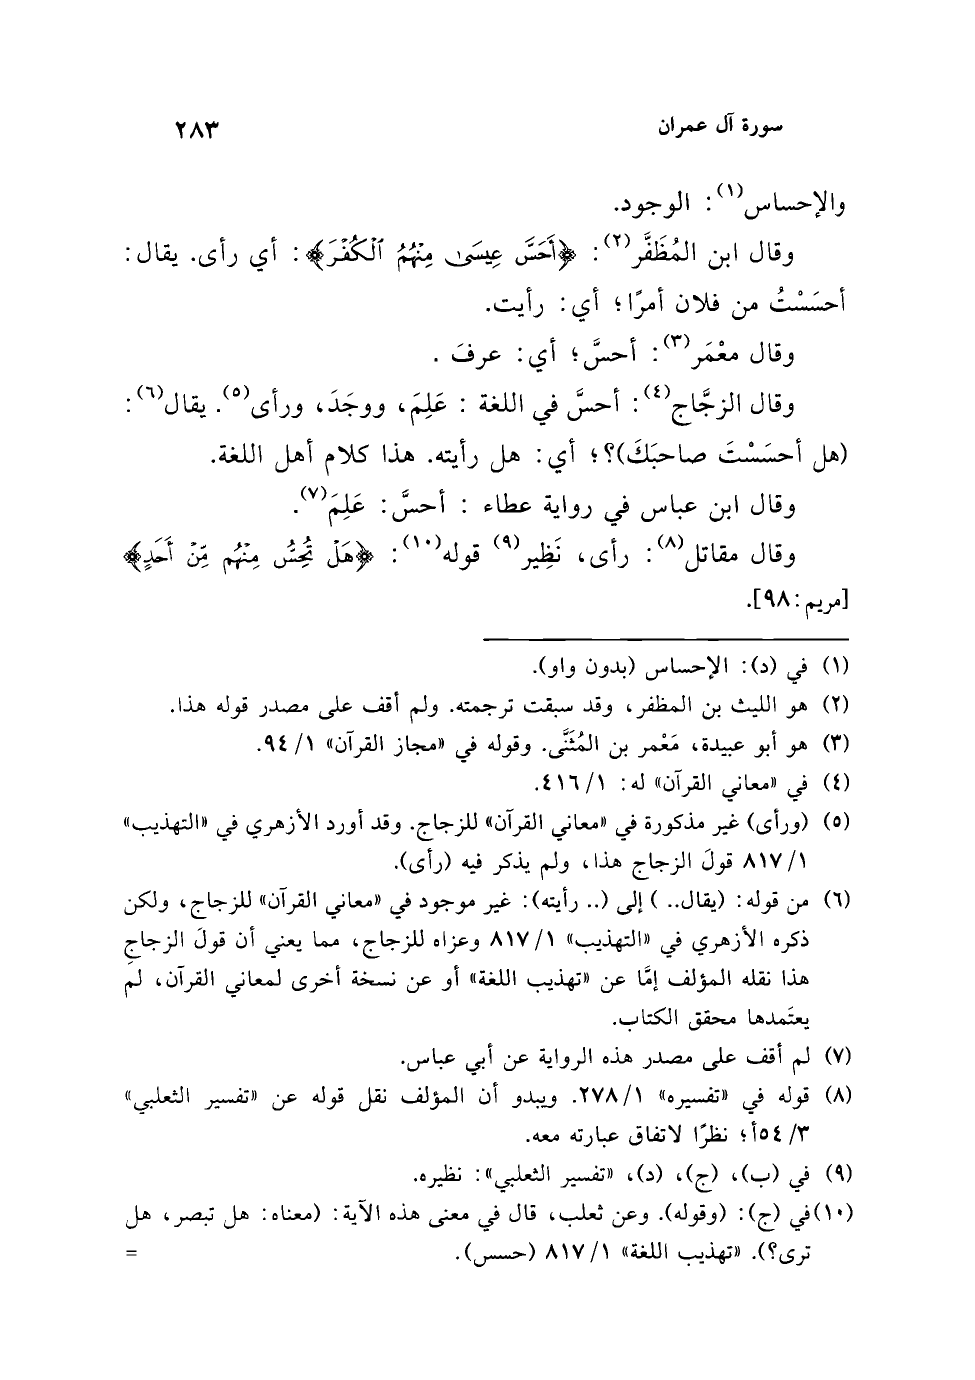 سورة آل عمران ٢٨٣
والإحساس(١): الوجود.
وقال ابن المُظَفَّر(٢): ﴿أَحَسَّ عِيسَىٰ مِنْهُمُ ٱلْكُفْرَ﴾: أي رأى. يقال:
أحسَسْتُ من فلان أمرًا؛ أي: رأيت.
وقال معْمَر(٣): أحسَّ؛ أي: عرفَ .
وقال الزجَّاج(٤): أحسَّ في اللغة : عَلِمَ، ووجَدَ، ورأى(٥). يقال(٦):
(هل أحسَسْتَ صاحبَكَ)؟؛ أي: هل رأيته. هذا كلام أهل اللغة.
وقال ابن عباس في رواية عطاء : أحسَّ: عَلِمَ(٧).
وقال مقاتل(٨): رأى، نَظِير(٩) قوله(١٠): ﴿هَلْ تُحِسُّ مِنْهُم مِّنْ أَحَدٍ﴾
[مريم:٩٨].
(١) في (د): الإحساس (بدون واو).
(٢) هو الليث بن المظفر، وقد سبقت ترجمته. ولم أقف على مصدر قوله هذا.
(٣) هو أبو عبيدة، مَعْمر بن المُثَنَّى. وقوله في «مجاز القرآن» ١/ ٩٤.
(٤) في «معاني القرآن» له: ١/ ٤١٦.
(٥) (ورأى) غير مذكورة في «معاني القرآن» للزجاج. وقد أورد الأزهري في «التهذيب»
١/ ٨١٧ قولَ الزجاج هذا، ولم يذكر فيه (رأى).
(٦) من قوله: (يقال.. ) إلى (.. رأيته): غير موجود في «معاني القرآن» للزجاج، ولكن
ذكره الأزهري في «التهذيب» ١/ ٨١٧ وعزاه للزجاج، مما يعني أن قولَ الزجاجِ
هذا نقله المؤلف إمَّا عن «تهذيب اللغة» أو عن نسخة أخرى لمعاني القرآن، لم
يعتَمدها محقق الكتاب.
(٧) لم أقف على مصدر هذه الرواية عن أبي عباس.
(٨) قوله في «تفسيره» ١/ ٢٧٨. ويبدو أن المؤلف نقل قوله عن «تفسير الثعلبي»
٣/ ٥٤أ؛ نظرًا لاتفاق عبارته معه.
(٩) في (ب)، (ج)، (د)، «تفسير الثعلبي»: نظيره.
(١٠) في (ج): (وقوله). وعن ثعلب، قال في معنى هذه الآية: (معناه: هل تبصر، هل
ترى؟). «تهذيب اللغة» ١/ ٨١٧ (حسس). =